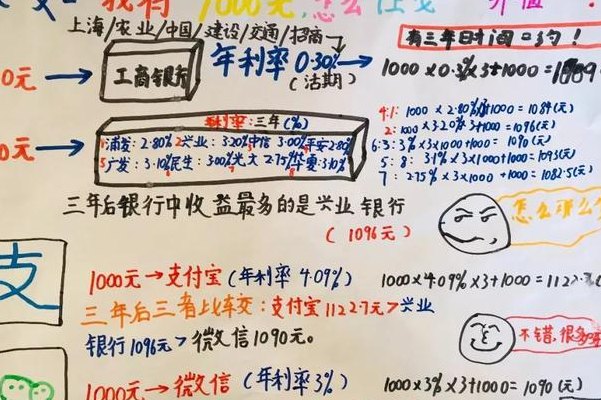 我有1000元,怎么
上海/农业/中国/建设/交通/招商
有三年时间
0元
工商银行
年利率 0.30%
(活期)
年利率:三年(%)
0元
1浦发:2.80% 2兴业:3.20% 中信 3.00% 平安2.80%
5广发:3.10% 民生:3.00% 光大 2.75% 华夏:3.10%
4:1: 1000 × 2.80% 1000=1084(元)
2: 1000×3.20% 3+1000=1096(元)
6:3:3%×3×1000+1000= 1090(元)
5:8:3.1%×3×1000+1000=1093元)
7:2.75%×3×1000 +1000=1082.5(元)
三年后银行中收益最多的是兴业 银行
(1096元)
怎么
支
1000元→支付宝(年利率 4.09%)
1000×4.09%×3+1000=1122.
三年后三者比较:支付宝1122.7元>兴业
银行1096元>微信1090元。
不错,很
1000元→微信(年利率3%)
1000×3%×3+1000=1090(元)